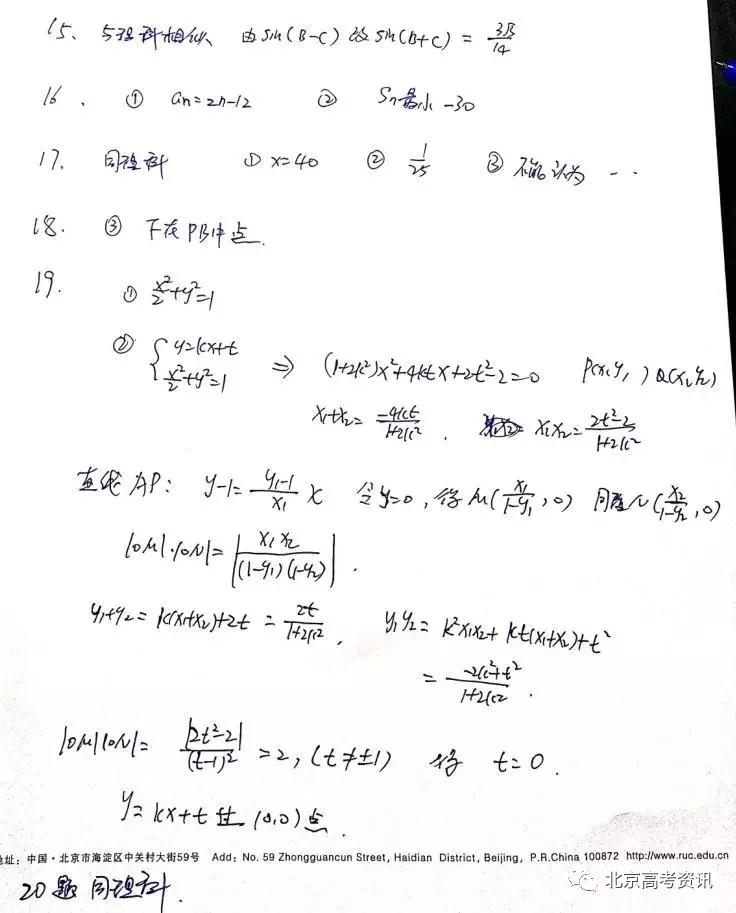 15、与理科相似、由sin(B-C)改sin(B+C) = 3√3/14
16. ① an=2n-12 ② Sn最小 -30
17. 同理科 ① x=40 ② 1/25 ③ 不能认为 ··
18. ③ F在PB中点.
19. ① x²/2+y²=1
② { y=kx+t x²/2+y²=1 ⇒ (1+2k²)x²+4ktx+2t²-2=0 P(x₁y₁) Q(x₂y₂)
x₁+x₂= -4kt/1+2k² . x₁x₂= 2t²-2/1+2k²
直线AP: y-1= y₁-1/x₁ x 令y=0,得M(x₁/1-y₁ ,0) 同理N(x₂/1-y₂ ,0)
|OM|·|ON|= |x₁x₂/(1-y₁)(1-y₂)| .
y₁+y₂= k(x₁+x₂)+2t = 2t/1+2k² . y₁y₂= k²x₁x₂+kt(x₁+x₂)+t²
= -2k²+t²/1+2k² .
|OM||ON|= |2t²-2|/(t-1)² =2, (t≠±1) 得 t=0.
y=kx+t 过 (0,0)点.
地址:中国·北京市海淀区中关村大街59号 Add: No. 59 Zhongguancun Street, Haidian District, Beijing, P.R.China 100872 http://www.ruc.edu.cn
20题 同理科.
北京高考资讯